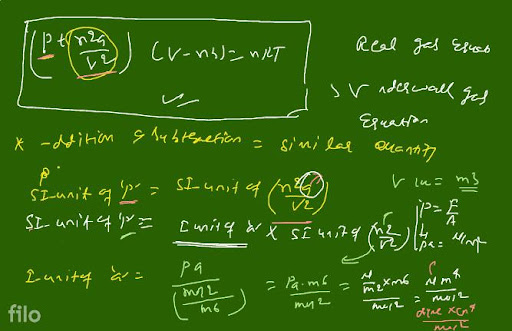 (P + n²a/V²) (V - nb) = nRT
Real gas
gas
Equation
* -ddition & subtraction = similar quantity
P
SI unit of 'P' = SI unit of (n²a/V²)
V in = m3
SI unit of 'P' = I unit of a × SI unit of (n²/V²)
P = F/A
Pa = N/m²
I unit of a = Pa/(mol²/m6) = Pa·m6/mol² = N/m² × m6/mol² = N m⁴/mol²
filo